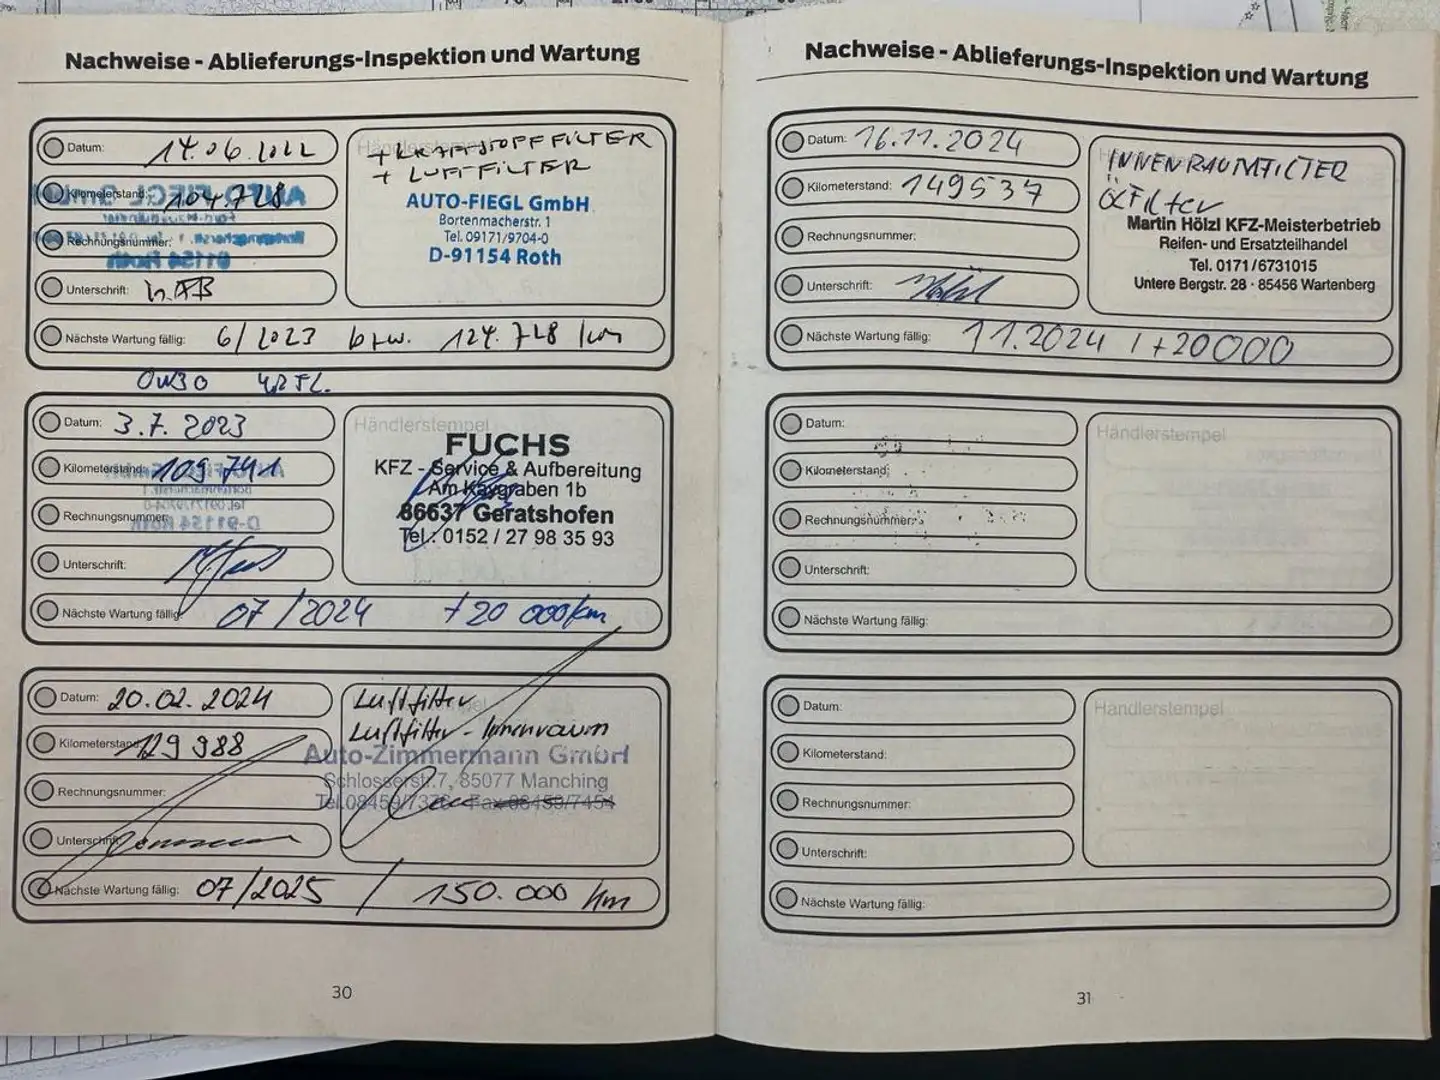 Nachweise - Ablieferungs-Inspektion und Wartung
Datum: 14.06.2022
Kilometerstand: 104.728
Rechnungsnummer:
Unterschrift:
+ KRAFTSTOFFFILTER
+ LUFTFILTER
AUTO-FIEGL GmbH
Bortenmacherstr. 1
Tel. 09171/9704-0
D-91154 Roth
Nächste Wartung fällig: 6/2023 bzw. 124.728 km
0W30
Datum: 3.7. 2023
Kilometerstand: 109 741
Rechnungsnummer:
Unterschrift:
Händlerstempel
FUCHS
KFZ - Service & Aufbereitung
Am Kaygraben 1b
86637 Geratshofen
Tel.: 0152 / 27 98 35 93
Nächste Wartung fällig: 07/2024 +20 000km
Datum: 20.02.2024
Kilometerstand: 129 988
Rechnungsnummer:
Unterschrift:
Luftfilter
Luftfilter - Innenraum
Auto-Zimmermann GmbH
Schlosserstr. 7, 85077 Manching
Tel. 08459/7376 Fax 08459/7454
Nächste Wartung fällig: 07/2025 / 150.000 km
30
Nachweise - Ablieferungs-Inspektion und Wartung
Datum: 16.11.2024
Kilometerstand: 149537
Rechnungsnummer:
Unterschrift:
INNENRAUMFILTER
ÖLFilter
Martin Hölzl KFZ-Meisterbetrieb
Reifen- und Ersatzteilhandel
Tel. 0171/6731015
Untere Bergstr. 28 · 85456 Wartenberg
Nächste Wartung fällig: 11.2024 / +20000
Datum:
Kilometerstand:
Rechnungsnummer:
Unterschrift:
Händlerstempel
Nächste Wartung fällig:
Datum:
Kilometerstand:
Rechnungsnummer:
Unterschrift:
Händlerstempel
Nächste Wartung fällig:
31